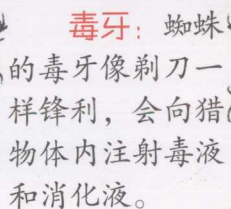 毒牙：蜘蛛
的毒牙像剃刀一
样锋利，会向猎
物体内注射毒液
和消化液。